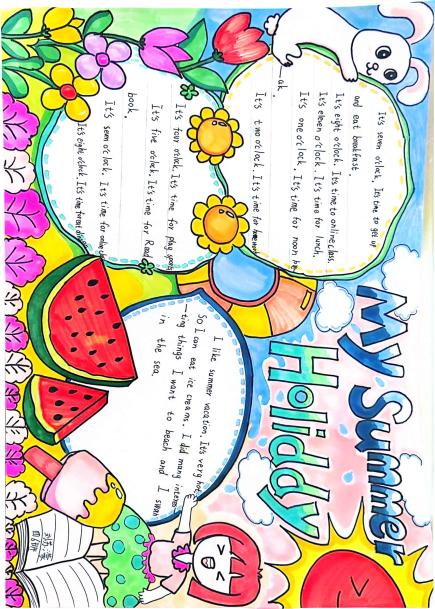 My Summer
Holiday
It's seven o'clock. It's time to get up
and eat breakfast
It's eight o'clock. It's time to online class.
It's eleven o'clock. It's time for lunch.
It's one o'clock. It's time for noon bre
—ak.
It's two o'clock. It's time for homework
It's four o'clock. It's time for play sports
It's five o'clock. It's time for Read
book.
It's seven o'clock. It's time for online
It's eight o'clock. It's time for
I like summer vacation. It's very hot,
So I can eat ice creams. I did many interes
—ting things I want to beach and I swam
in the sea.